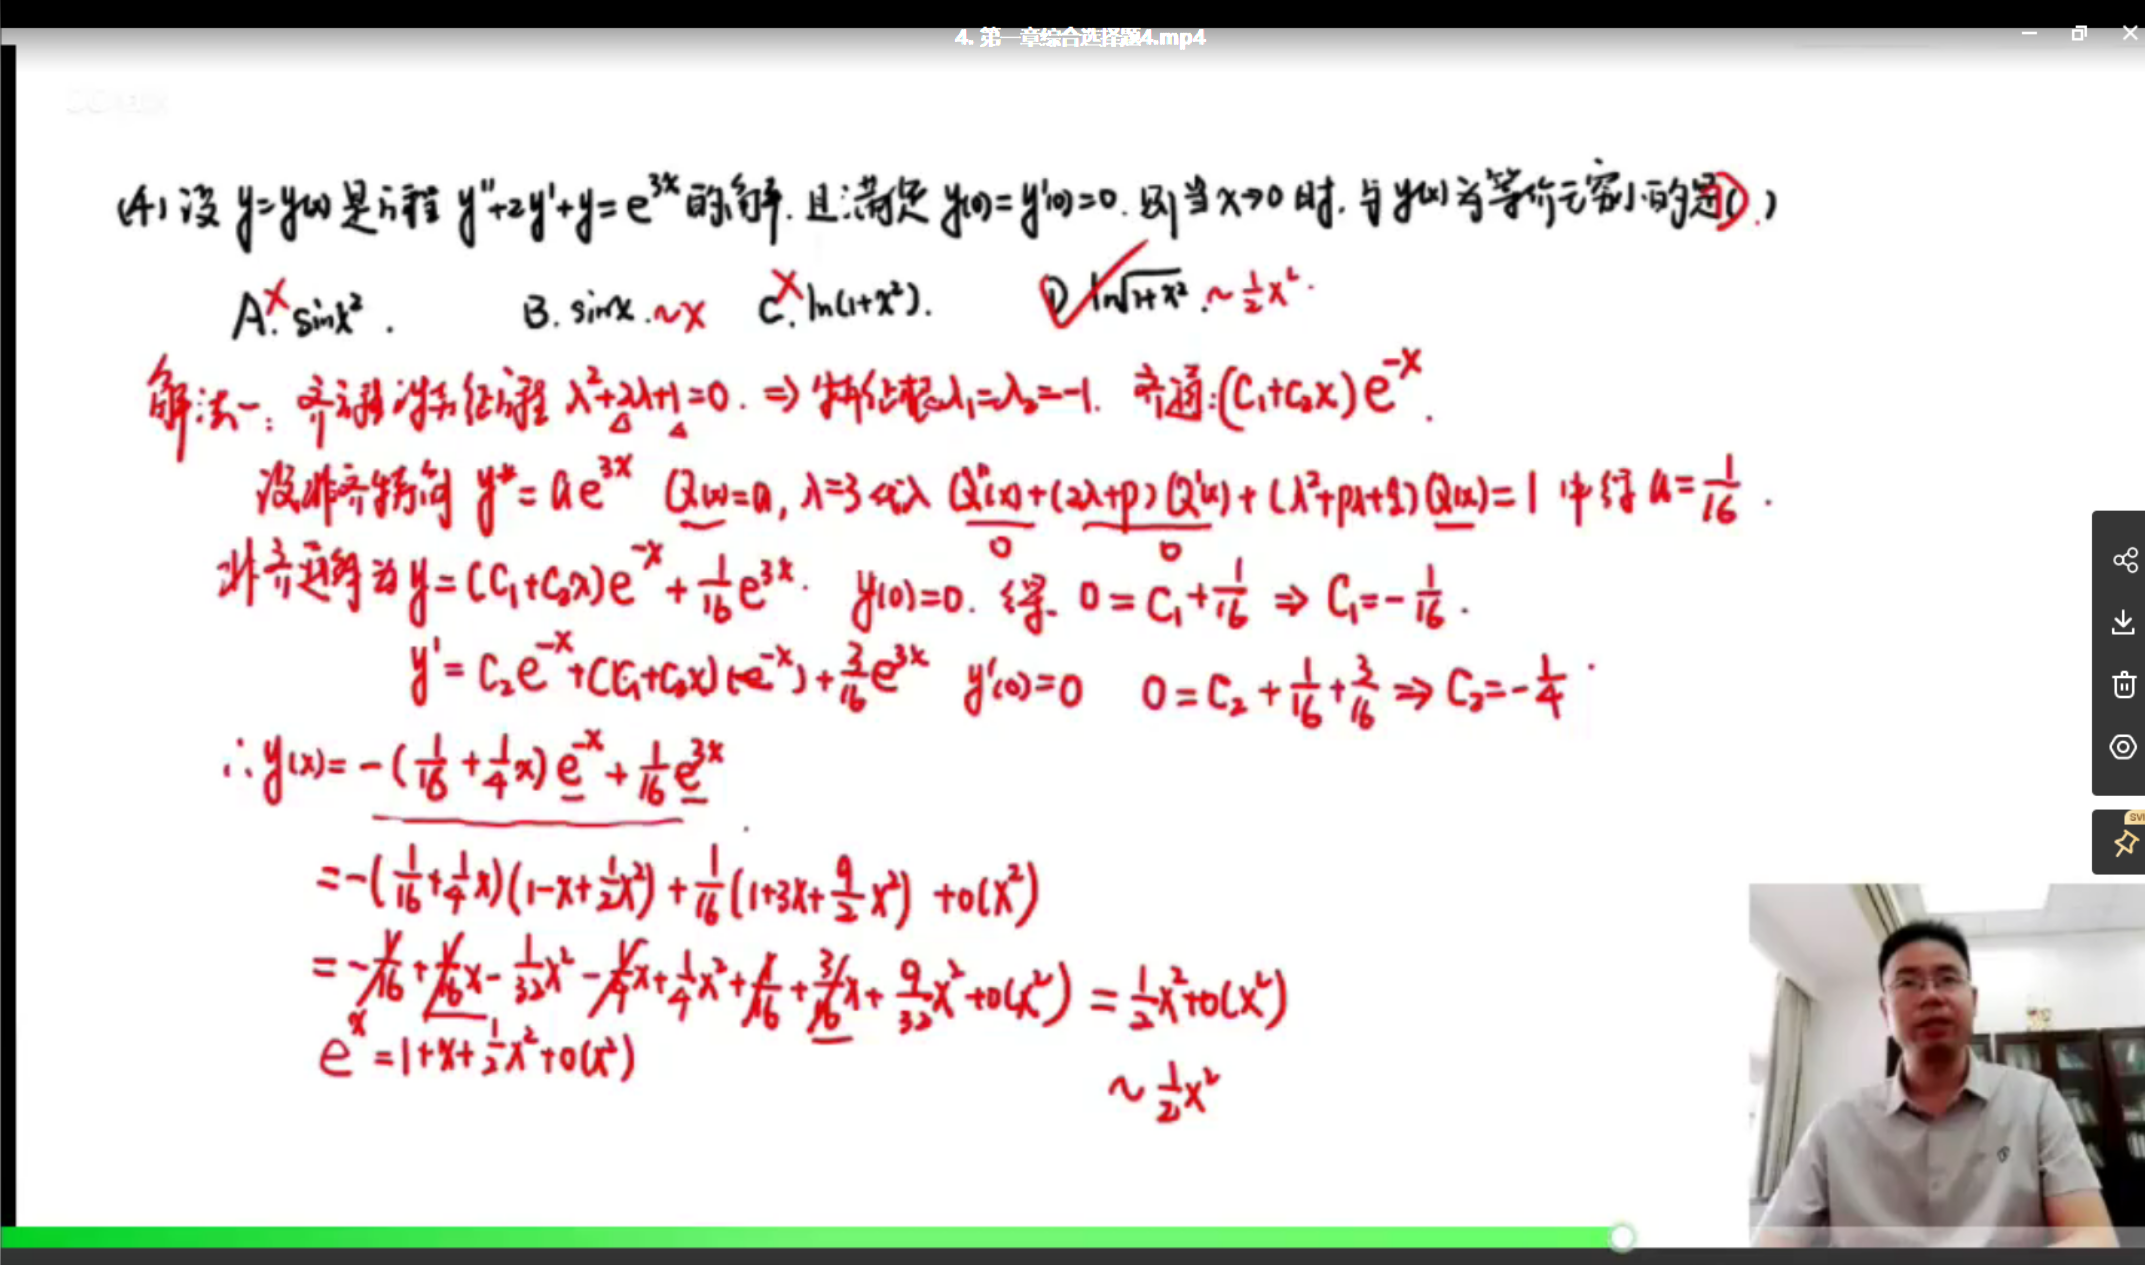 4. 第一章综合选择题4.mp4
(4) 设 y=y(x) 是方程 y''+2y'+y=e^{3x} 的解. 且满足 y(0)=y'(0)=0. 则当 x→0 时. 与 y(x) 为等价无穷小的是(D.)
A. × sinx². B. sinx. ~x C. × ln(1+x²). D. ln√(1+x²). ~ 1/2 x².
解法一: 齐方程对应特征方程 λ²+2λ+1=0. ⇒ 特征根λ₁=λ₂=-1. 齐通:(C₁+C₂x)e^{-x}.
设非齐特解 y*=ae^{3x} Q(x)=a, λ=3 代入 Q''(x)+(2λ+p)Q'(x)+(λ²+pλ+q)Q(x)=1 中得 a=1/16.
0 0
非齐通解为 y=(C₁+C₂x)e^{-x}+1/16 e^{3x}. y(0)=0. 得. 0=C₁+1/16 ⇒ C₁=-1/16.
y'=C₂e^{-x}+(C₁+C₂x)(-e^{-x})+3/16 e^{3x} y'(0)=0 0=C₂+1/16+3/16 ⇒ C₂=-1/4.
∴ y(x)=-(1/16+1/4 x)e^{-x}+1/16 e^{3x}
=-(1/16+1/4 x)(1-x+1/2 x²)+1/16(1+3x+9/2 x²)+o(x²)
=-1/16+1/16 x-1/32 x²-1/4 x+1/4 x²+1/16+3/16 x+9/32 x²+o(x²)=1/2 x²+o(x²)
e^x=1+x+1/2 x²+o(x²)
~1/2 x²